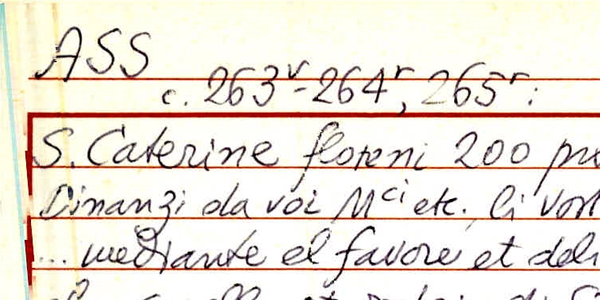 ASS
c. 263v-264r, 265r:
S. Caterine floreni 200
Dinanzi da voi Mci etc. li
... mediante el favore et